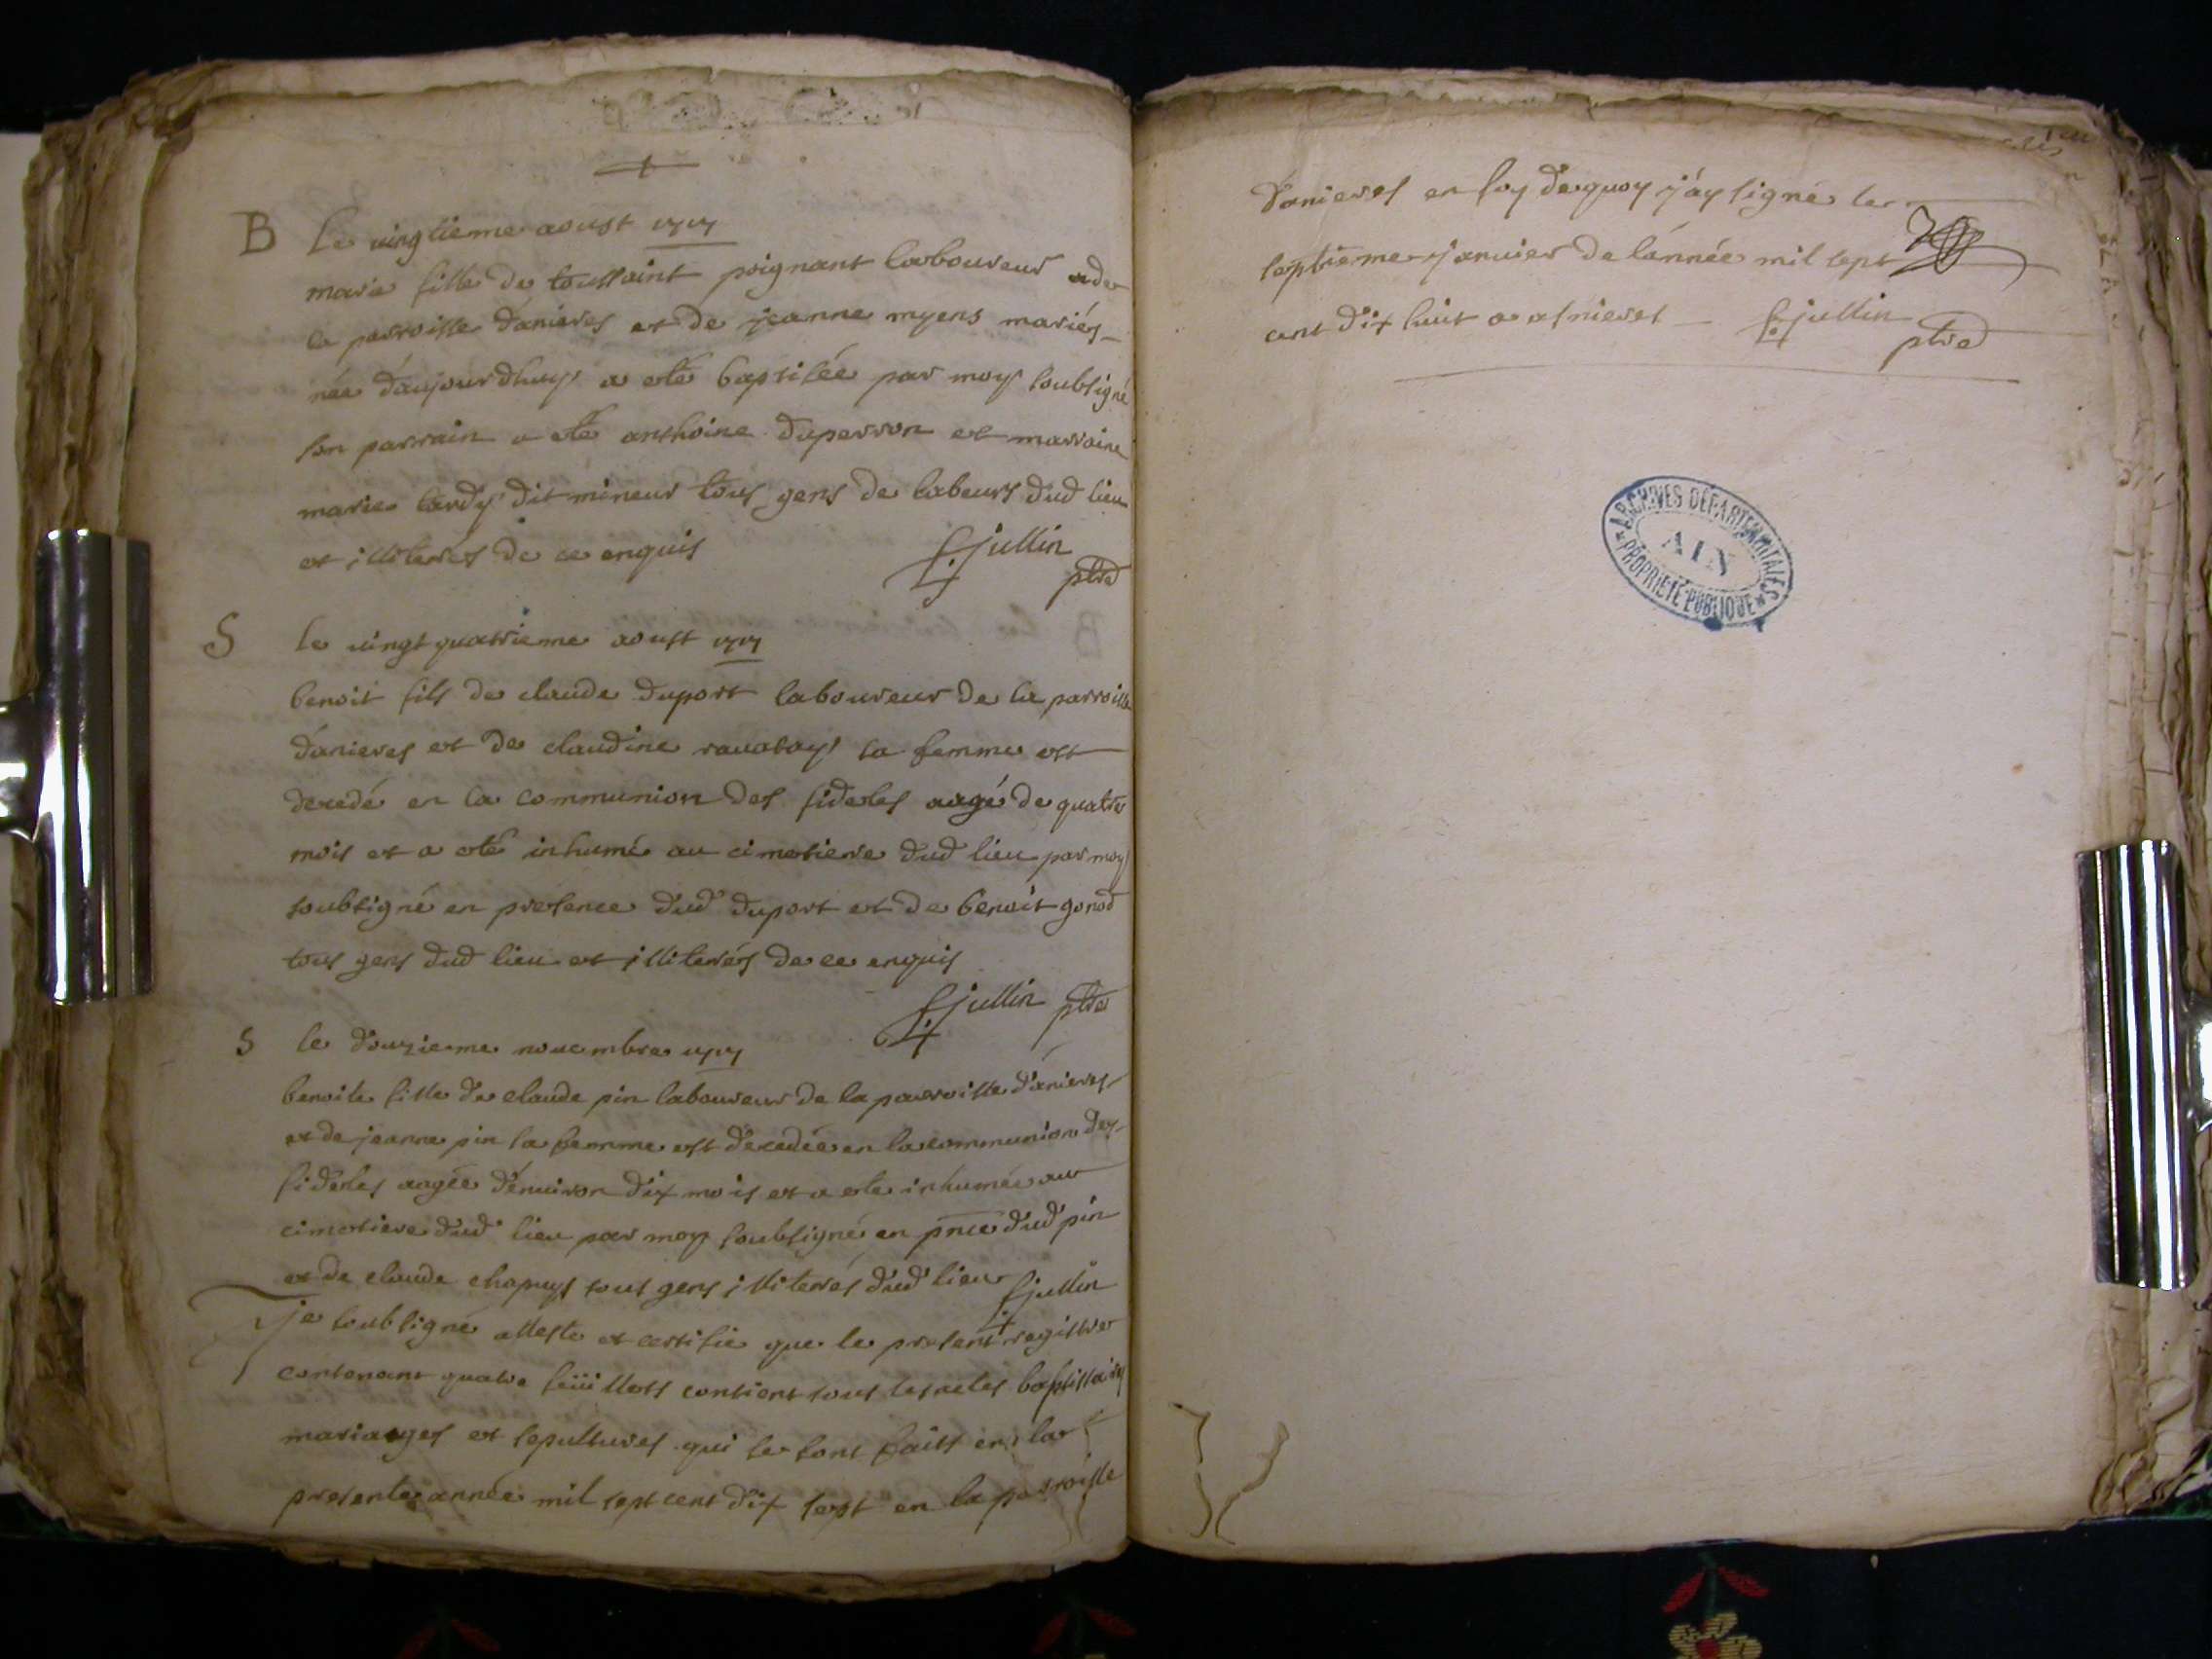 B Le vingtieme aoust 1717
marie fille de toussaint poignant laboureur de
la parroisse d'anieres et de jeanne myens mariés
née d'aujourdhuy a eté baptisée par moy soubsigné
son parrain a eté anthoine duperron et marraine
marie tardy dit mineur tous gens de labeurs dud lieu
et illiterés de ce enquis
f. jullin
ptre
S le vingt quatrieme aoust 1717
benoit fils de claude duport laboureur de la parroisse
d'anieres et de claudine ravatays sa femme est
decedé en la communion des fideles aagé de quatre
mois et a eté inhumé au cimetiere dud lieu par moy
soubsigné en presence dud duport et de benoit gonod
tous gens dud lieu et illiterés de ce enquis
f. jullin ptre
S le douzieme novembre 1717
benoite fille de claude pin laboureur de la parroisse d'anieres
et de jeanne pin sa femme est decedée en la communion des
fideles aagée d'environ dix mois et a eté inhumée au
cimetiere dud lieu par moy soubsigné en pnce dud pin
et de claude chapuys tous gens illiterés dud lieu f. jullin
je soubsigné atteste et certifie que le present registre
contenant quatre feüillets contient tous les actes baptistaires
mariages et sepultures qui se sont faits en la
presente année mil sept cent dix sept en la parroisse
d'anieres en foy dequoy j'ay signé le
septieme janvier de l'année mil sept
cent dix huit a asnieres f. jullin
ptre
ARCHIVES DÉPARTEMENTALES
AIN
PROPRIÉTÉ PUBLIQUE